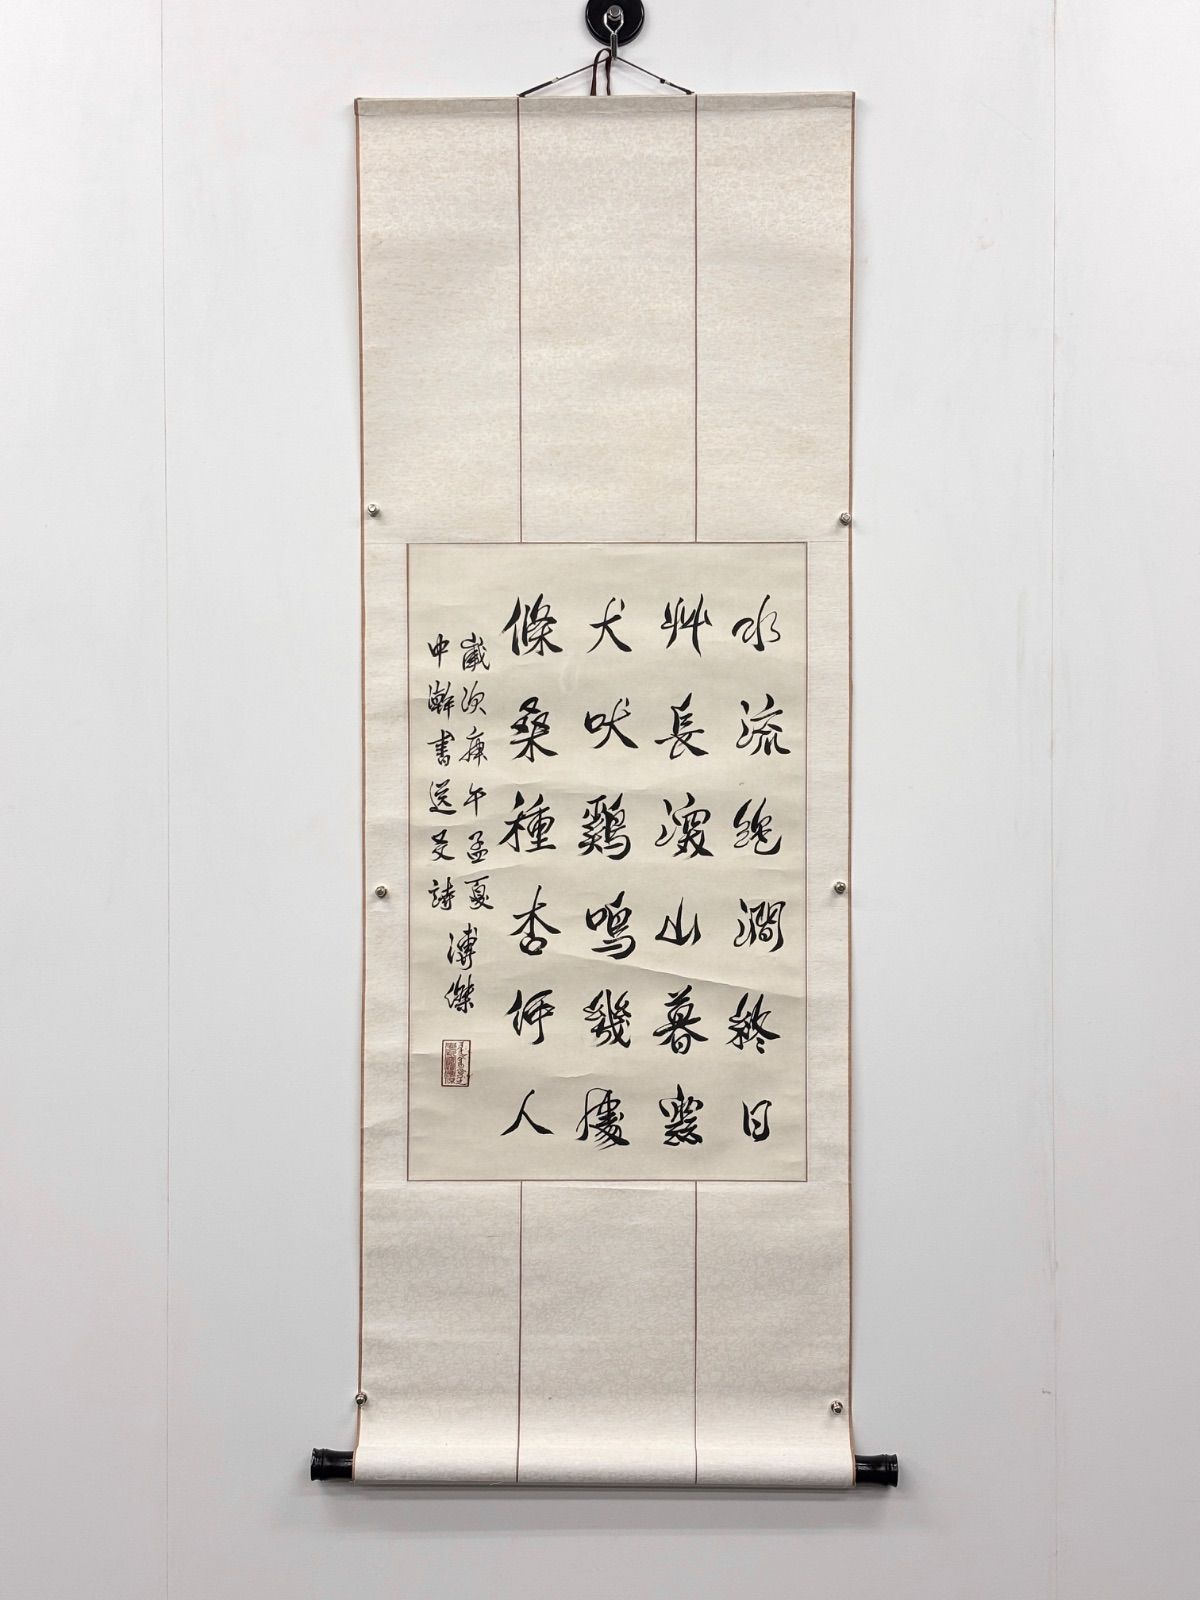 水流絕澗終日
艸長深山暮雲
犬吠鷄鳴幾處
條桑種杏何人
歲次庚午孟夏
中澣書送友詩
溥傑